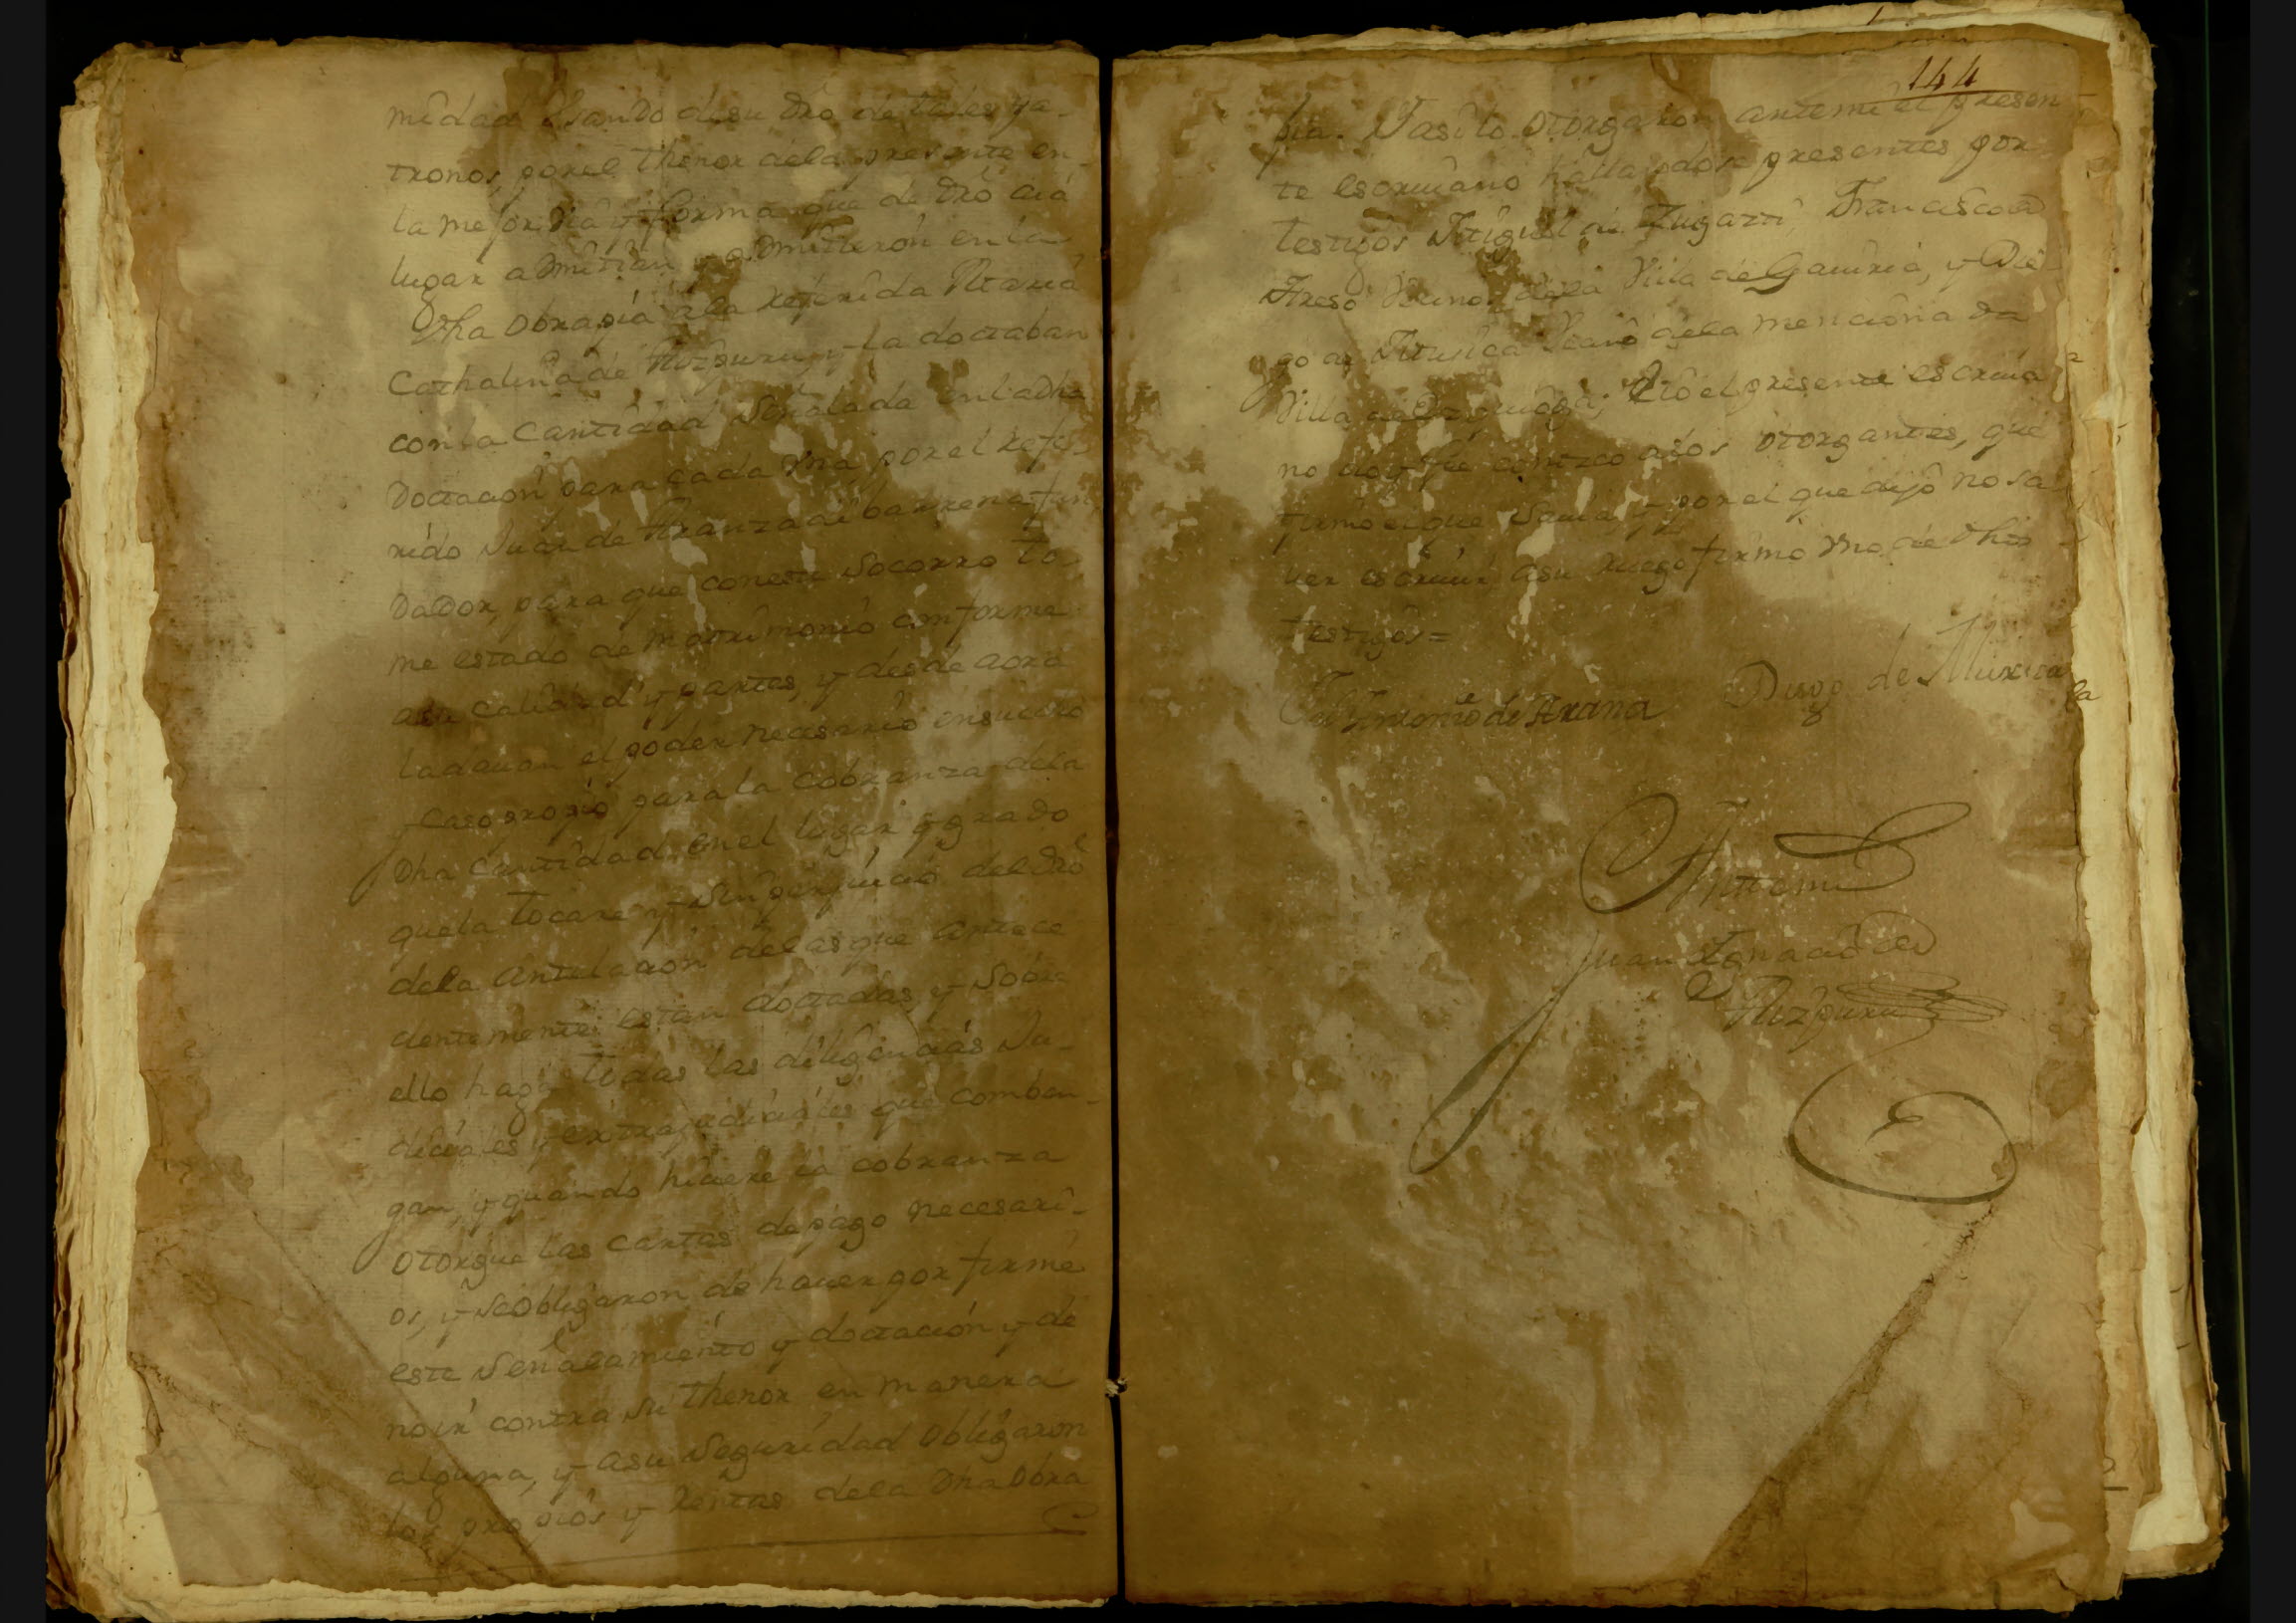 midad Usando desu dro de tales pa-
tronos, por el thenor dela presente en
la mejor via y forma que de dro aiá
lugar admitian y admitieron en la
dha obrapia ala referida Maria
Cathalina de Aizpuru, y la doctaban
con la Cantidad Señalada en la dha
Doctacion para cada Vna por el refe-
rido Juan de Aranzadi barrena fun
dador, para que coneste Socorro to
me estado de matrimonio conforme
asu calidad y partes, y desde aora
ladauan el poder necesario ensucaro
y caso propio para la Cobranza dela
dha Cantidad en el lugar y grado
quela tocare y Sin perjuicio del dro
dela antelacion delas que antece
dentemente estan doctadas, y Sobre
ello haga todas las diligencias Ju-
diciales y extrajudiciales que comben-
gan, y quando hiciere la cobranza
otorgue las Cartas de pago necesari-
os, y seobligaron de hauer por firme
este Señalamiento y doctación y de
no ir contra su thenor en manera
alguna, y asu Seguridad obligaron
los propios y Rentas dela dha obra
144
pia. Y asi lo otorgaron ante mi el presen
te escriuano hallandose presentes por
testigos Miguel de Zugazti, Francisco de
Vecinos dela Villa de Gauiria, y Die
go de Muxica Vecino dela menciona da
Villa de; Yo el presente escriua
no doy fee conozco a los otorgantes, que
firmo el que Sauia, y por el que dijo no sa
uer escriuir, asu ruego firmo Vno de dhos
testigos=
Antonio de Arana Diego de Muxica
Ante mi
Juan Ignacio de
Aizpuru